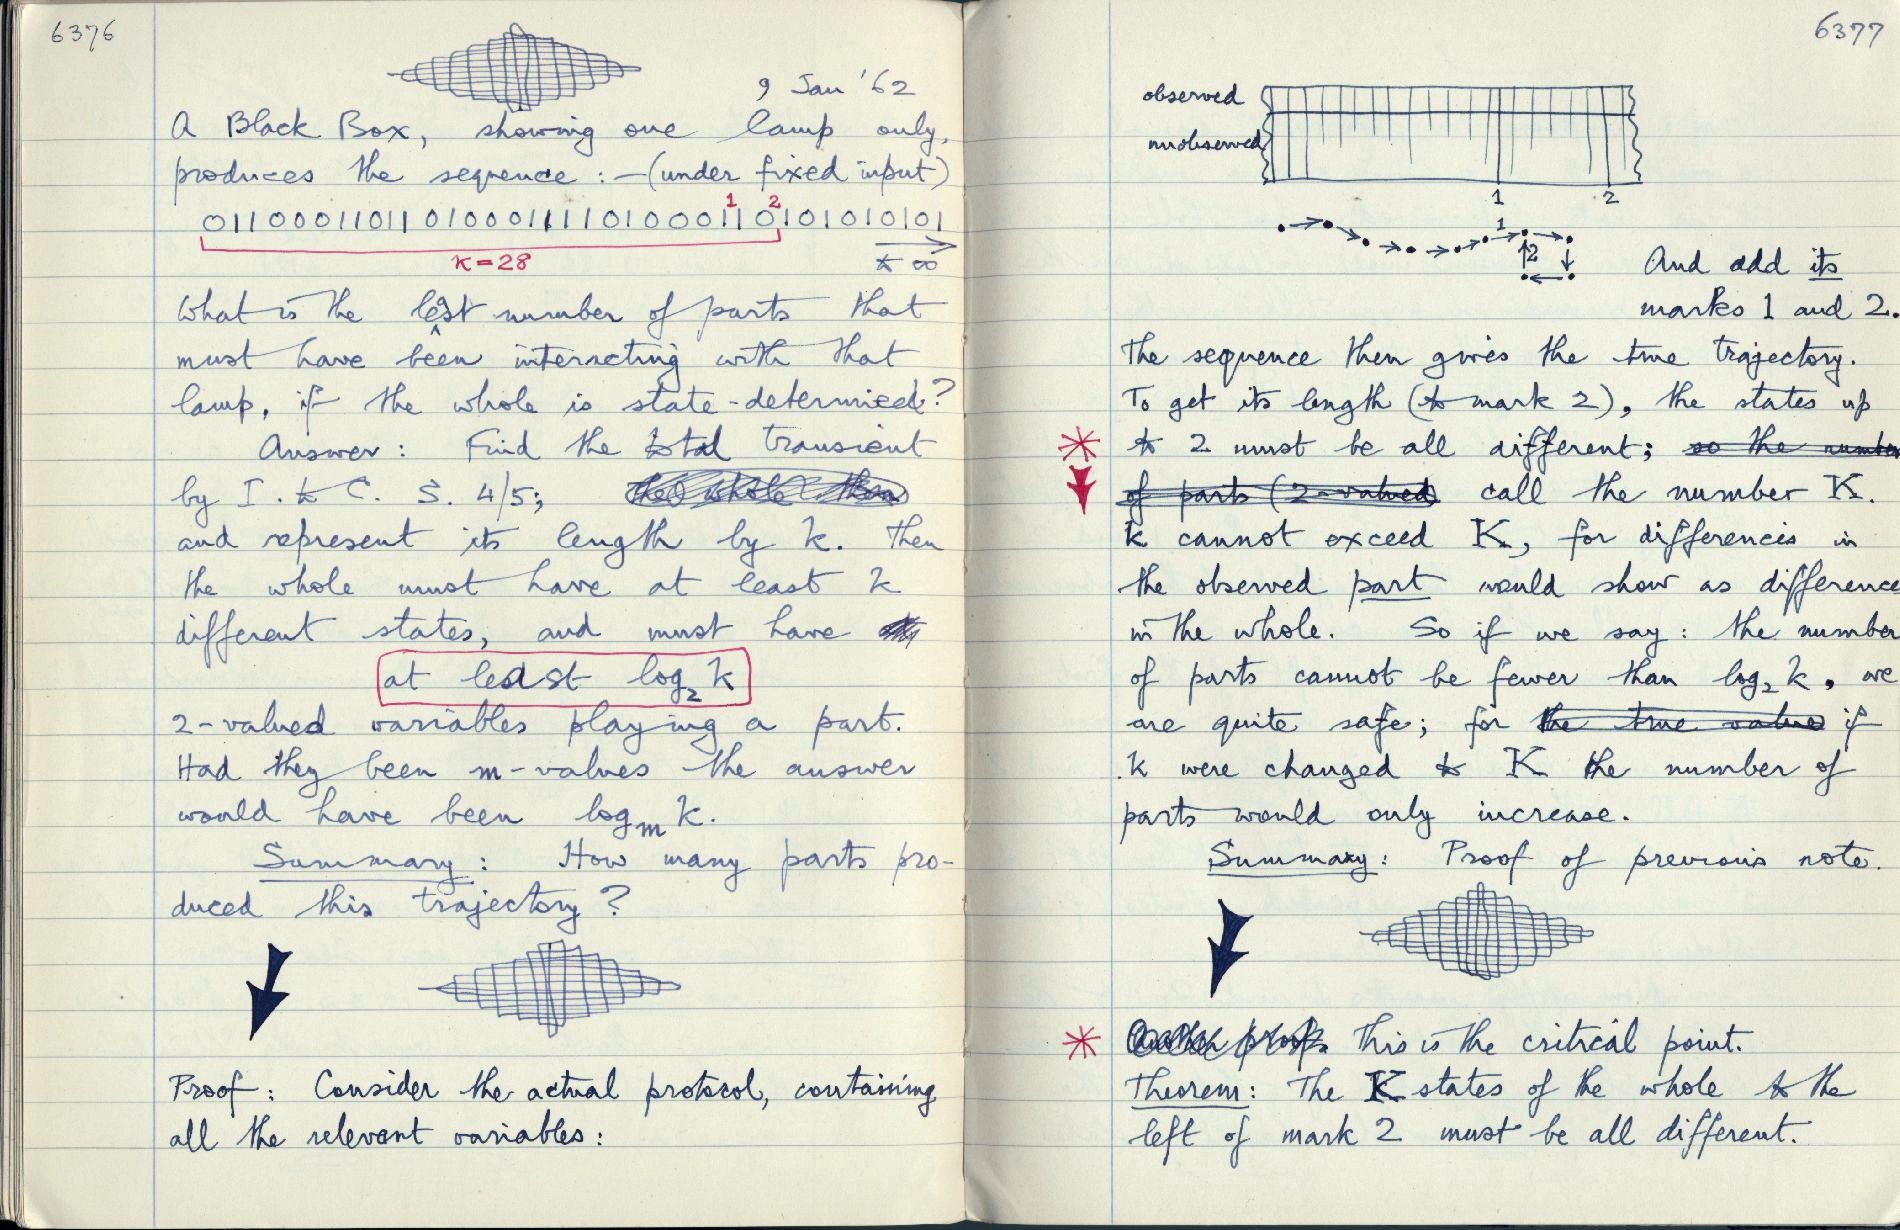 6376
9 Jan '62
A Black Box, showing one lamp only,
produces the sequence :- (under fixed input)
1 2
0110001101101000111110100011010101010101
k = 28
to ∞
What is the least number of parts that
must have been interacting with that
lamp, if the whole is state-determined?
Answer : Find the total transient
by I. to C. S. 4/5;
and represent its length by k. Then
the whole must have at least k
different states, and must have
at least log₂ k
2-valued variables playing a part.
Had they been m-values the answer
would have been logₘ k.
Summary : How many parts pro-
duced this trajectory?
Proof : Consider the actual protocol, containing
all the relevant variables :
6377
observed
unobserved
1 2
1
2
And add its
marks 1 and 2.
The sequence then gives the true trajectory.
To get its length (to mark 2), the states up
to 2 must be all different; so the number
of parts (2-valued call the number K.
k cannot exceed K, for differences in
the observed part would show as difference
in the whole. So if we say : the number
of parts cannot be fewer than log₂ k, we
are quite safe; for the true value if
k were changed to K the number of
parts would only increase.
Summary : Proof of previous note.
This is the critical point.
Theorem : The K states of the whole to the
left of mark 2 must be all different.